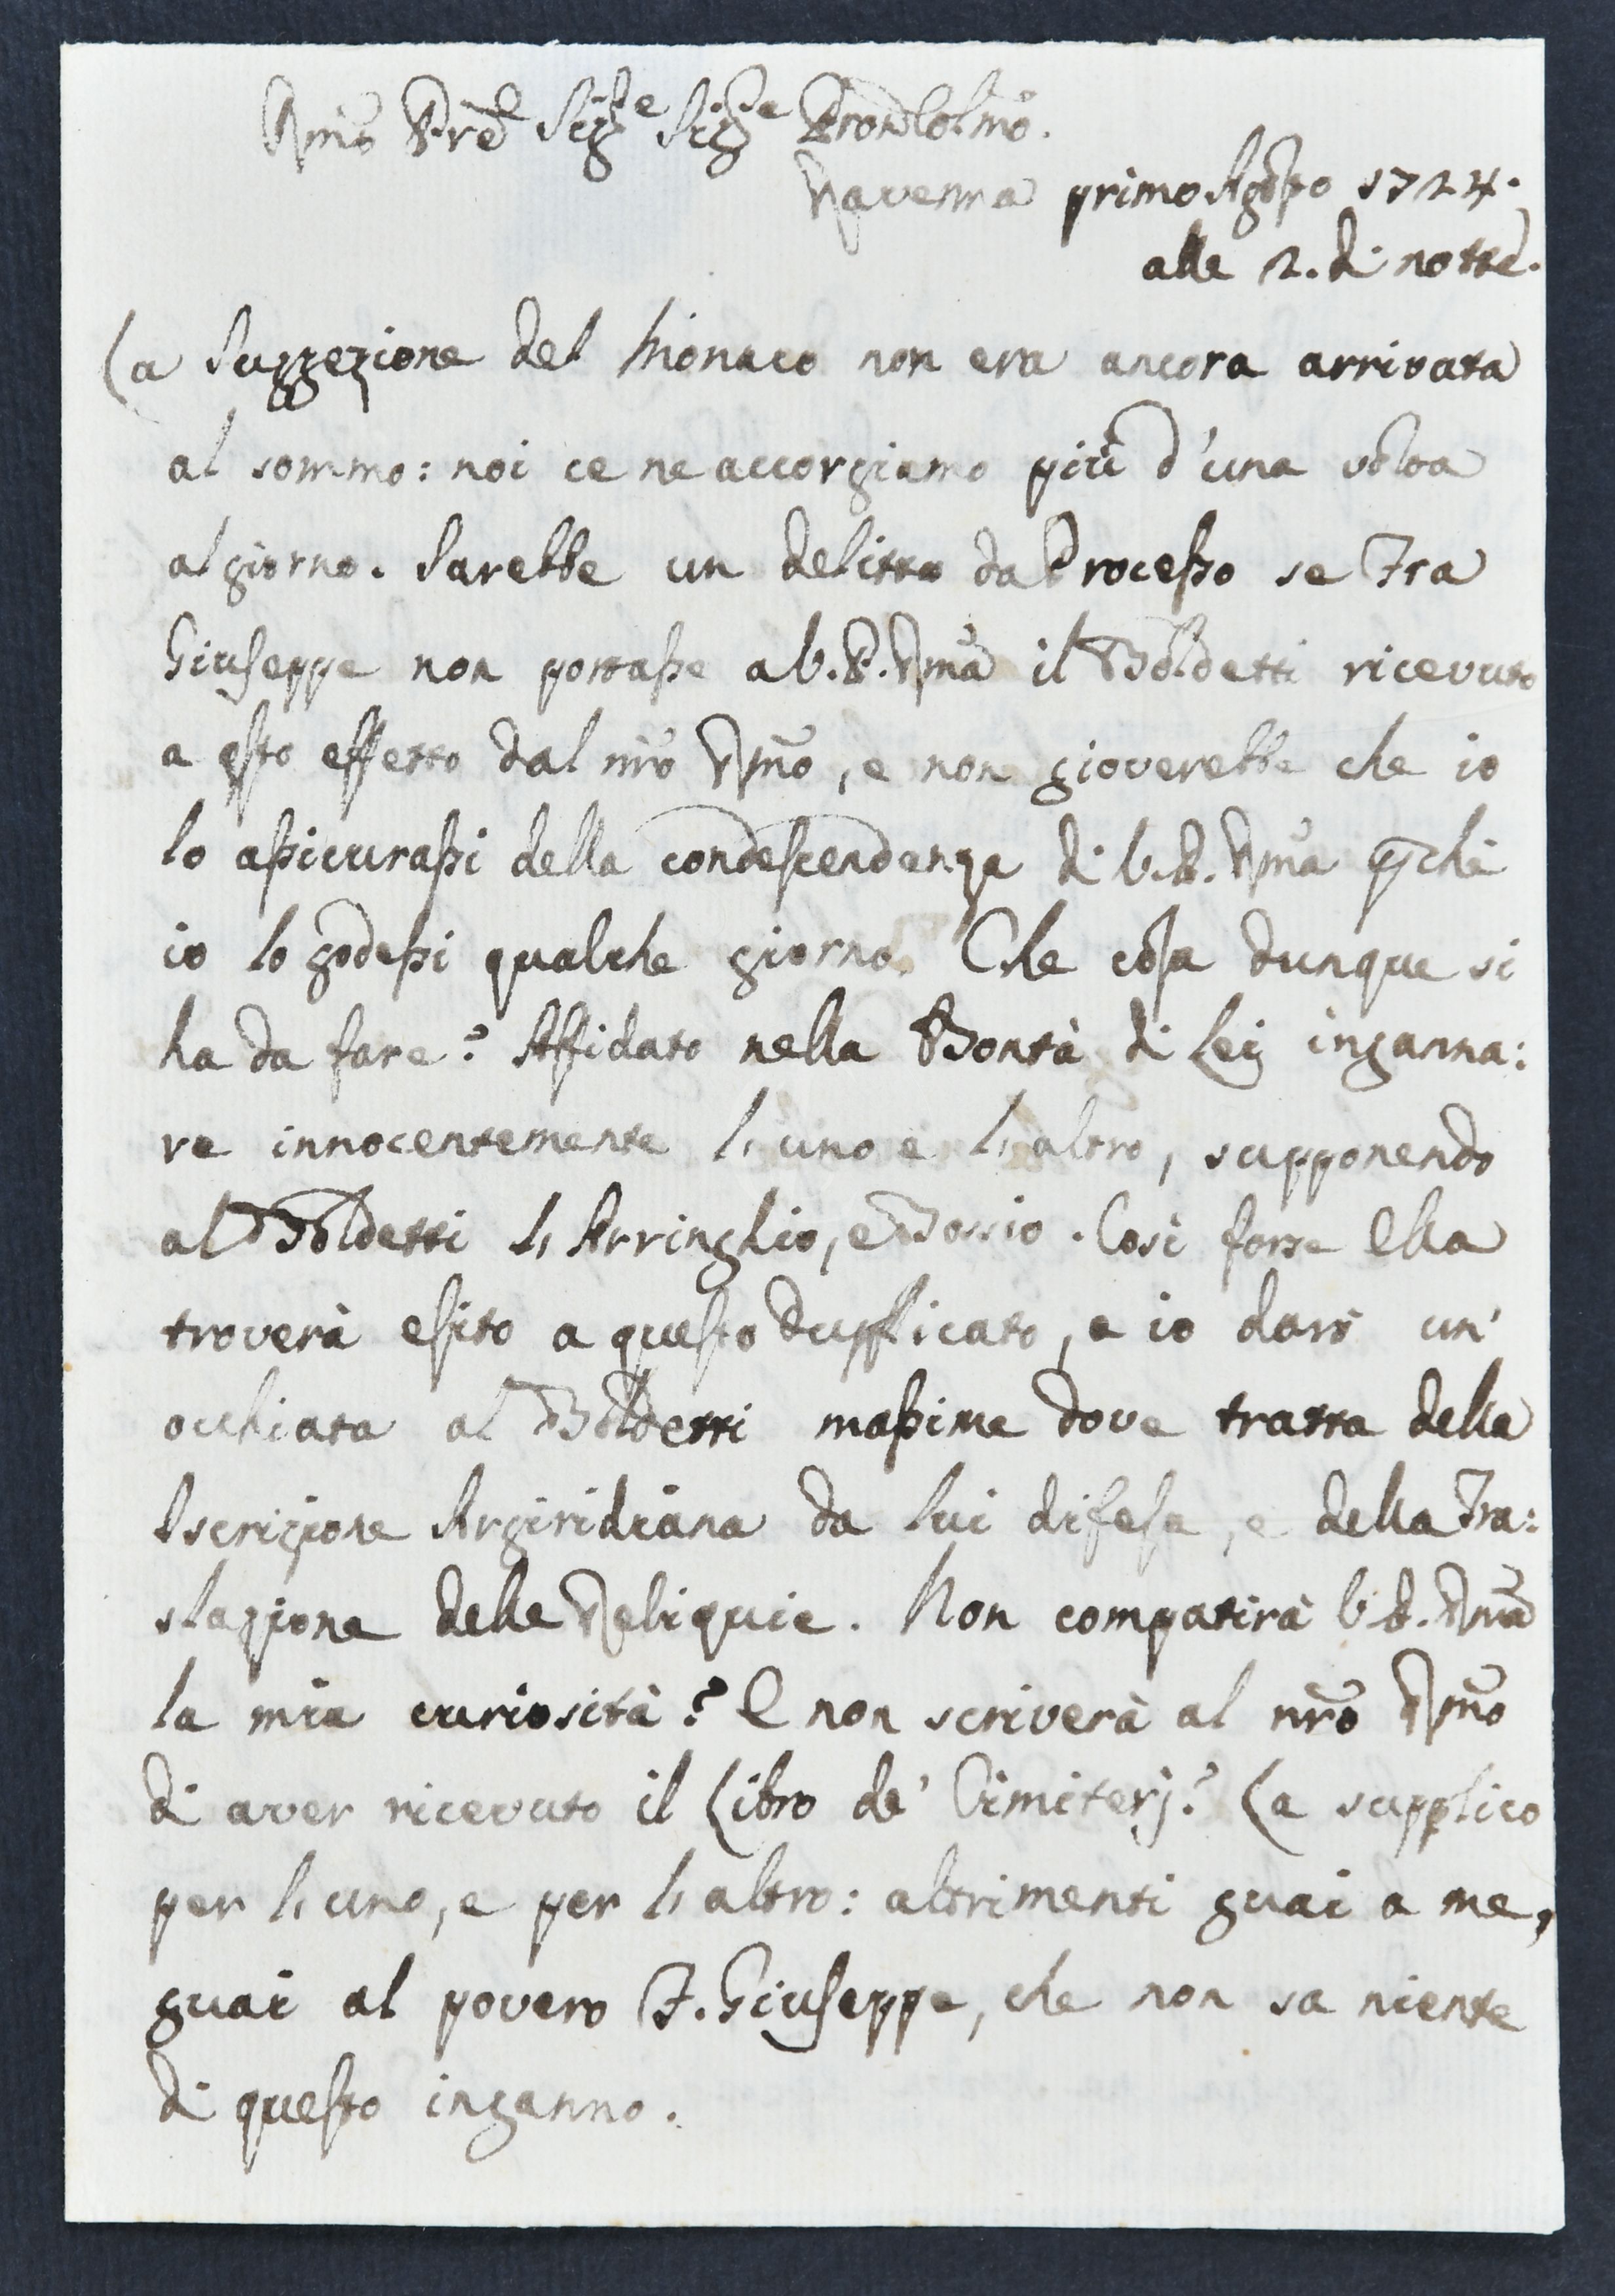 Rmo Pre Sig.re Sig.re Pron Colmo.
Ravenna primo Agosto 1724.
alle 2. di notte.
La Suggezione del Monaco non era ancora arrivata
al sommo: noi ce ne accorgiamo più d'una volta
al giorno. Sarebbe un delitto da Processo se Fra
Giuseppe non portasse a V.P.Rma il Boldetti ricevuto
a qsto effetto dal nro Rmo, e non gioverebbe che io
lo assicurassi della condescendenza di V.P.Rma pchè
io lo godessi qualche giorno. Che cosa dunque si
ha da fare? Affidato nella Bontà di Lei inganna:
re innocentemente l'uno e l'altro, supponendo
al Boldetti l'Arringhio, e Bossio. Così forse Ella
troverà esito a questo Dupplicato, e io darò un'
occhiata al Boldetti massime dove tratta della
Iscrizione Argiridiana da lui difesa, e della Tra:
slazione delle Reliquie. Non compatirà V.P.Rma
la mia curiosità? E non scriverà al nro Rmo
di aver ricevuto il Libro de' Cimiterj? La supplico
per l'uno, e per l'altro: altrimenti guai a me,
guai al povero F. Giuseppe, che non sa niente
di questo inganno.